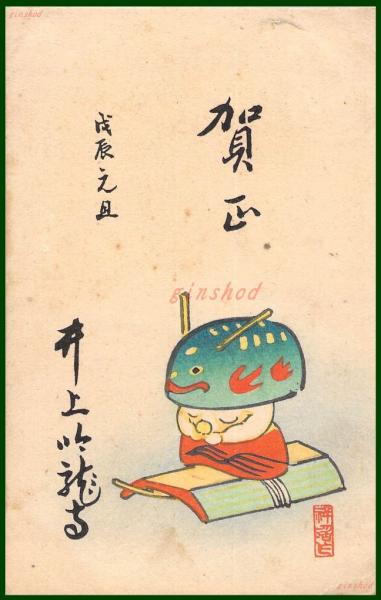 ginshod
賀正
戊辰元旦
ginshod
井上吟龍寺
ginshod